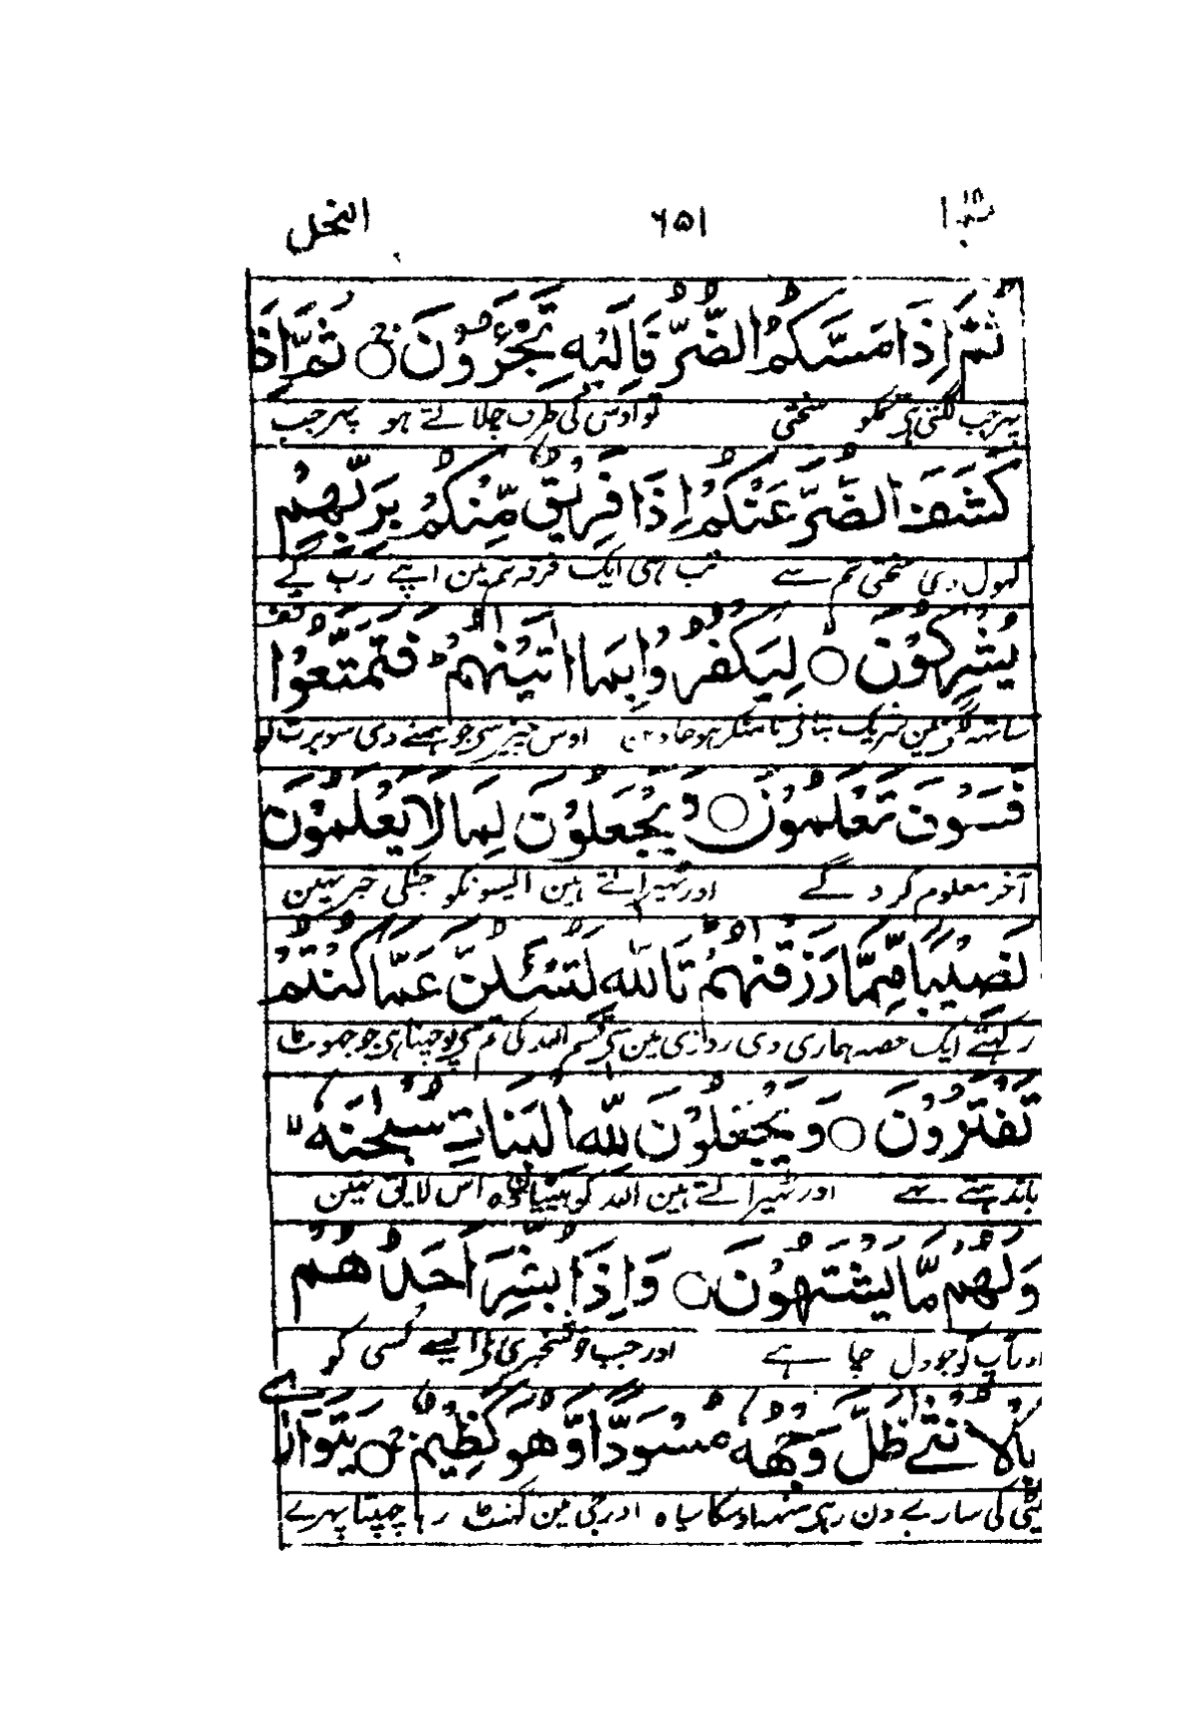 النحل ۶۵۱ ربما
ثُمَّ اِذَا مَسَّكُمُ الضُّرُّ فَاِلَيْهِ تَجْـَٔرُوْنَ ۝ ثُمَّ اِذَا
پہر جب لگتی ہی تمکو سختی تو اوسی کی طرف چلاتے ہو پہر جب
كَشَفَ الضُّرَّ عَنْكُمْ اِذَا فَرِيْقٌ مِّنْكُمْ بِرَبِّهِمْ
کہول دی سختی تم سے تب ہی ایک فرقہ تم مین اپنے رب کے
يُشْرِكُوْنَ ۝ لِيَكْفُرُوْا بِمَا اٰتَيْنٰهُمْ ؕ فَتَمَتَّعُوْا
ساتہ لگتے ہین شریک بتانی تا منکر ہو جاوین اوس چیز سی جو ہمنے دی سو برت لو
فَسَوْفَ تَعْلَمُوْنَ ۝ وَيَجْعَلُوْنَ لِمَا لَا يَعْلَمُوْنَ
آخر معلوم کر و گے اور ٹہیراتے ہین ایسونکو جنکی خبر نہین
نَصِيْبًا مِّمَّا رَزَقْنٰهُمْ ؕ تَاللّٰهِ لَتُسْـَٔلُنَّ عَمَّا كُنْتُمْ
رکہتے ایک حصہ ہماری دی روزی مین سی قسم اللہ کی تم سی پوچہنا ہی جو جہوٹ
تَفْتَرُوْنَ ۝ وَيَجْعَلُوْنَ لِلّٰهِ الْبَنَاتِ سُبْحٰنَهٗ ۙ
باندہتے تہے اور ٹہیراتے ہین اللہ کو بیٹیان وہ اس لایق نہین
وَلَهُمْ مَّا يَشْتَهُوْنَ ۝ وَاِذَا بُشِّرَ اَحَدُهُمْ
اور آپ کو جو دل چاہے اور جب خوشخبری ملی ایسے کسی کو
بِالْاُنْثٰى ظَلَّ وَجْهُهٗ مُسْوَدًّا وَّهُوَ كَظِيْمٌ ۝ يَتَوَارٰى
بیٹی کی سارے دن رہی منہہ اوسکا سیاہ اور جی مین گہٹ رہا چہپتا پہرے